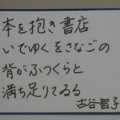 本を抱き書店
いでゆくをさなごの
背がふつくらと
満ち足りてゐる
古谷智子